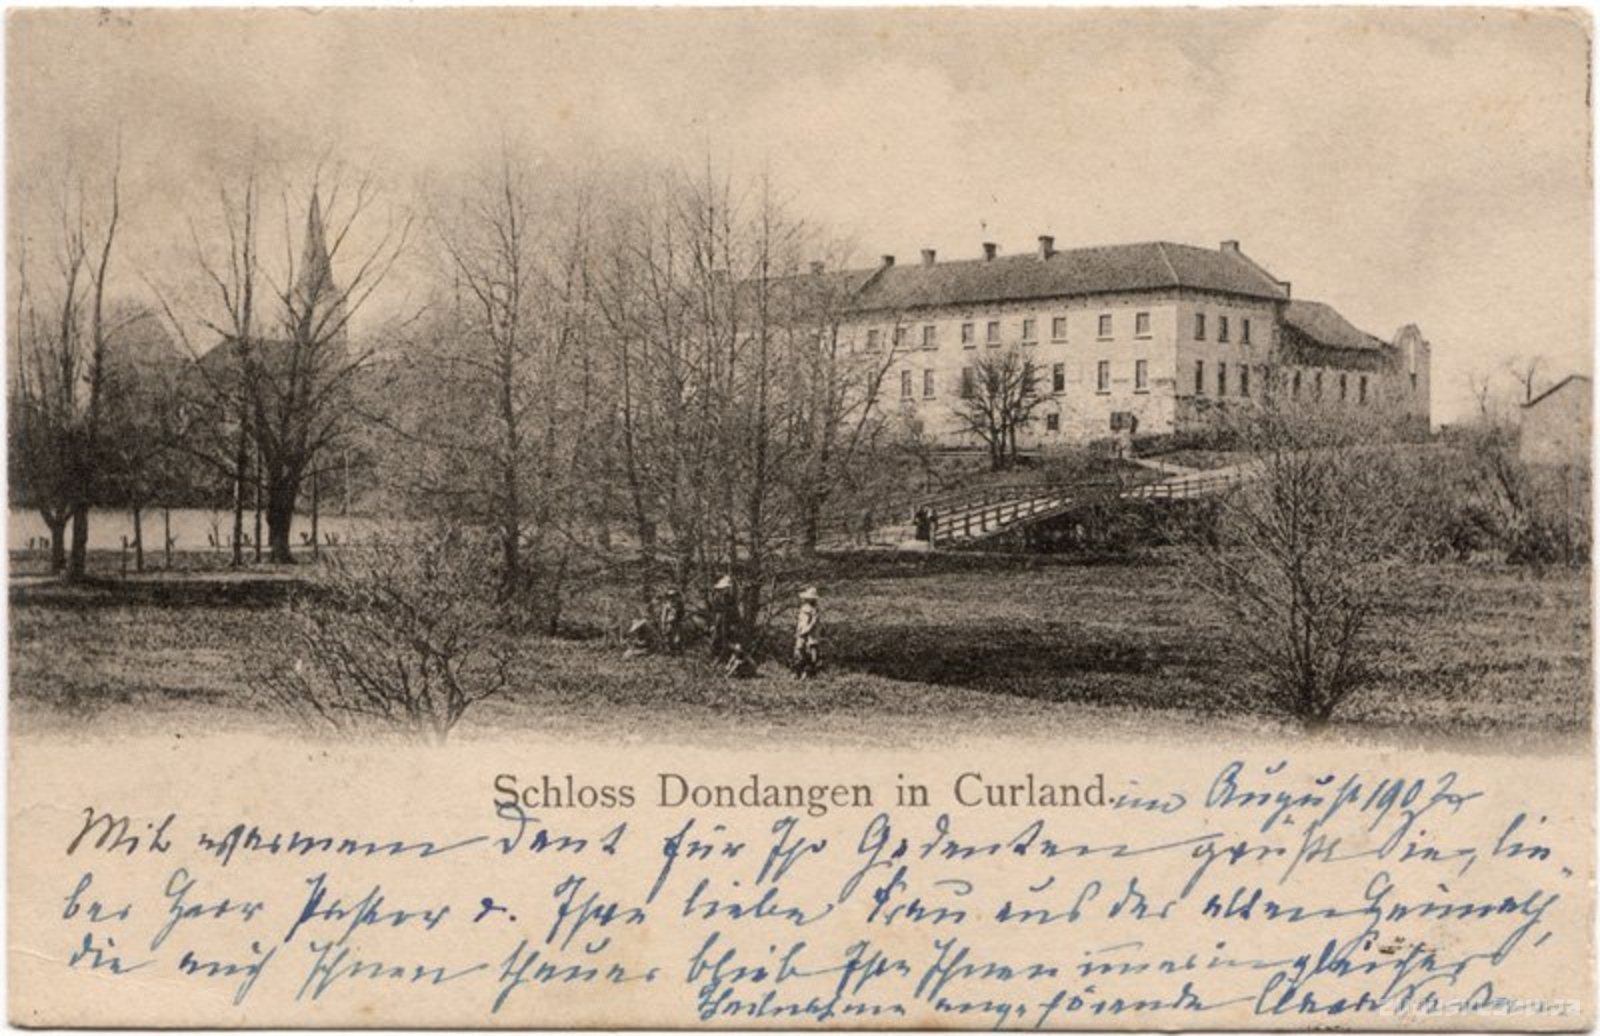 Schloss Dondangen in Curland.
im August 1902
Mit warmem Dank für Ihr Gedenken grüßt Sie, lie-
ber Herr Pastor u. Ihre liebe Frau aus der alten Heimath,
die auch Ihnen theuer blieb Ihre Ihnen immer in gleicher
Theilnahme angehörende